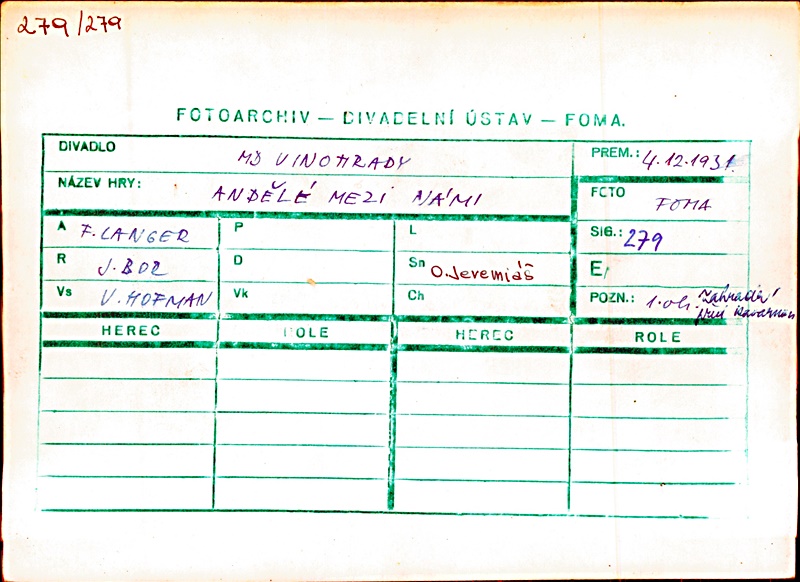 279/279
FOTOARCHIV — DIVADELNÍ ÚSTAV — FOMA.
DIVADLO MD VINOHRADY
PREM.: 4.12.1931
NÁZEV HRY: ANDĚLÉ MEZI NÁMI
FOTO FOMA
A F. LANGER P L SIG.: 279
R J. BOR D Sn O. Jeremiáš E/
Vs V. HOFMAN Vk Ch POZN.: 1. ob. Zahradní
HEREC ROLE HEREC ROLE